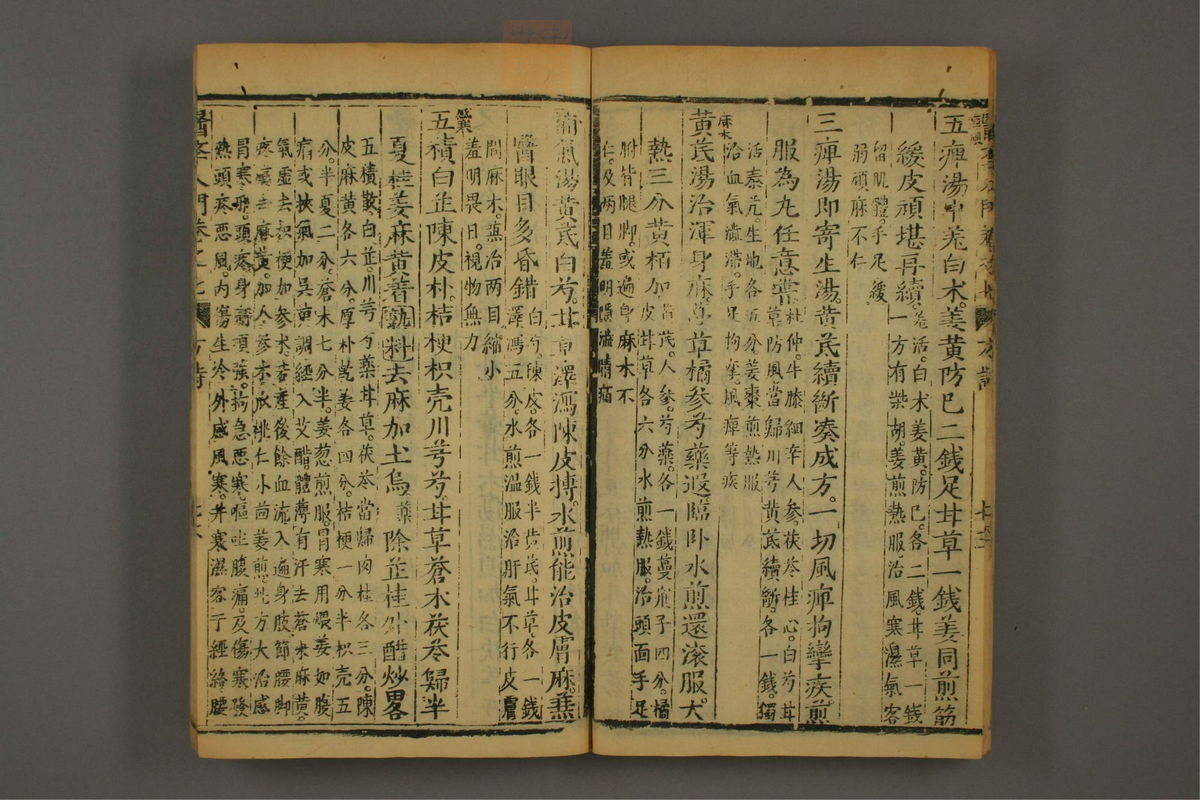 五痺湯中羌白术姜黃防巳二錢足甘草一錢姜同煎筋
緩皮頑堪再續
羗活。白术姜黃。防巳。各二錢。甘草一錢
一方有柴胡。姜煎熱服治風寒濕氣客
留肌體。手足緩
弱頑麻不仁
三痺湯即寄生湯。黃茋續斷凑成方。一切風痺拘攣疾煎
服為丸任意嘗
杜仲。牛膝細辛人參。茯苓桂心。白芍甘
草防風當歸川芎黃茋續斷。各一錢。獨
活秦艽。生地各五分姜棗煎熱服
治血氣澁滯。手足拘攣風痺等疾
麻木
黃茋湯治渾身麻
草橘參芍藥遐臨卧水煎還滚服。大
熱三分黃栢加
黃茋。人參。芍藥。各一錢蔓荊子四分。橘
皮甘草各六分水煎熱服。治頭面手足
胕背腿脚。或遍身麻木不
仁。及兩目羞明隱澁睛痛
醫學入門卷之七
方詩
氣湯黃茋白芍。甘草澤瀉陳皮摶。水煎能治皮膚麻。蕪
醫眼目多昏錯
白芍。陳皮。各一錢半黃茋。甘草。各一錢
澤瀉五分。水煎溫服治肝氣不行皮膚
間麻木。蒸治两目縮小
羞明畏日。視物無力
五積白芷陳皮朴。桔梗枳壳川芎芍。甘草蒼术茯苓歸半
夏桂姜麻黃着熟料去麻加土烏藥除芷桂外醋炒畧
五積散白芷。川芎芍藥甘草。茯苓當歸肉桂各三分。陳
皮麻黃各六分。厚朴乾姜各四分。桔梗一分半枳壳五
分。半夏二分。蒼术七分半。姜葱煎服。胃寒用煨姜如腹
痛或挾氣加吳茰調經入艾醋體薄有汗去蒼术麻黃。
氣虛去枳梗加參术。若產後餘血流入遍身肢節腰脚
疼痛去麻黃。加人參木瓜桃仁小茴姜煎。此方大治感
胃寒邪。頭疼身痛項強。拘急惡寒。嘔吐腹痛。及傷寒發
熱頭疼惡風。内傷生冷外感風寒。并寒濕客于經絡腰